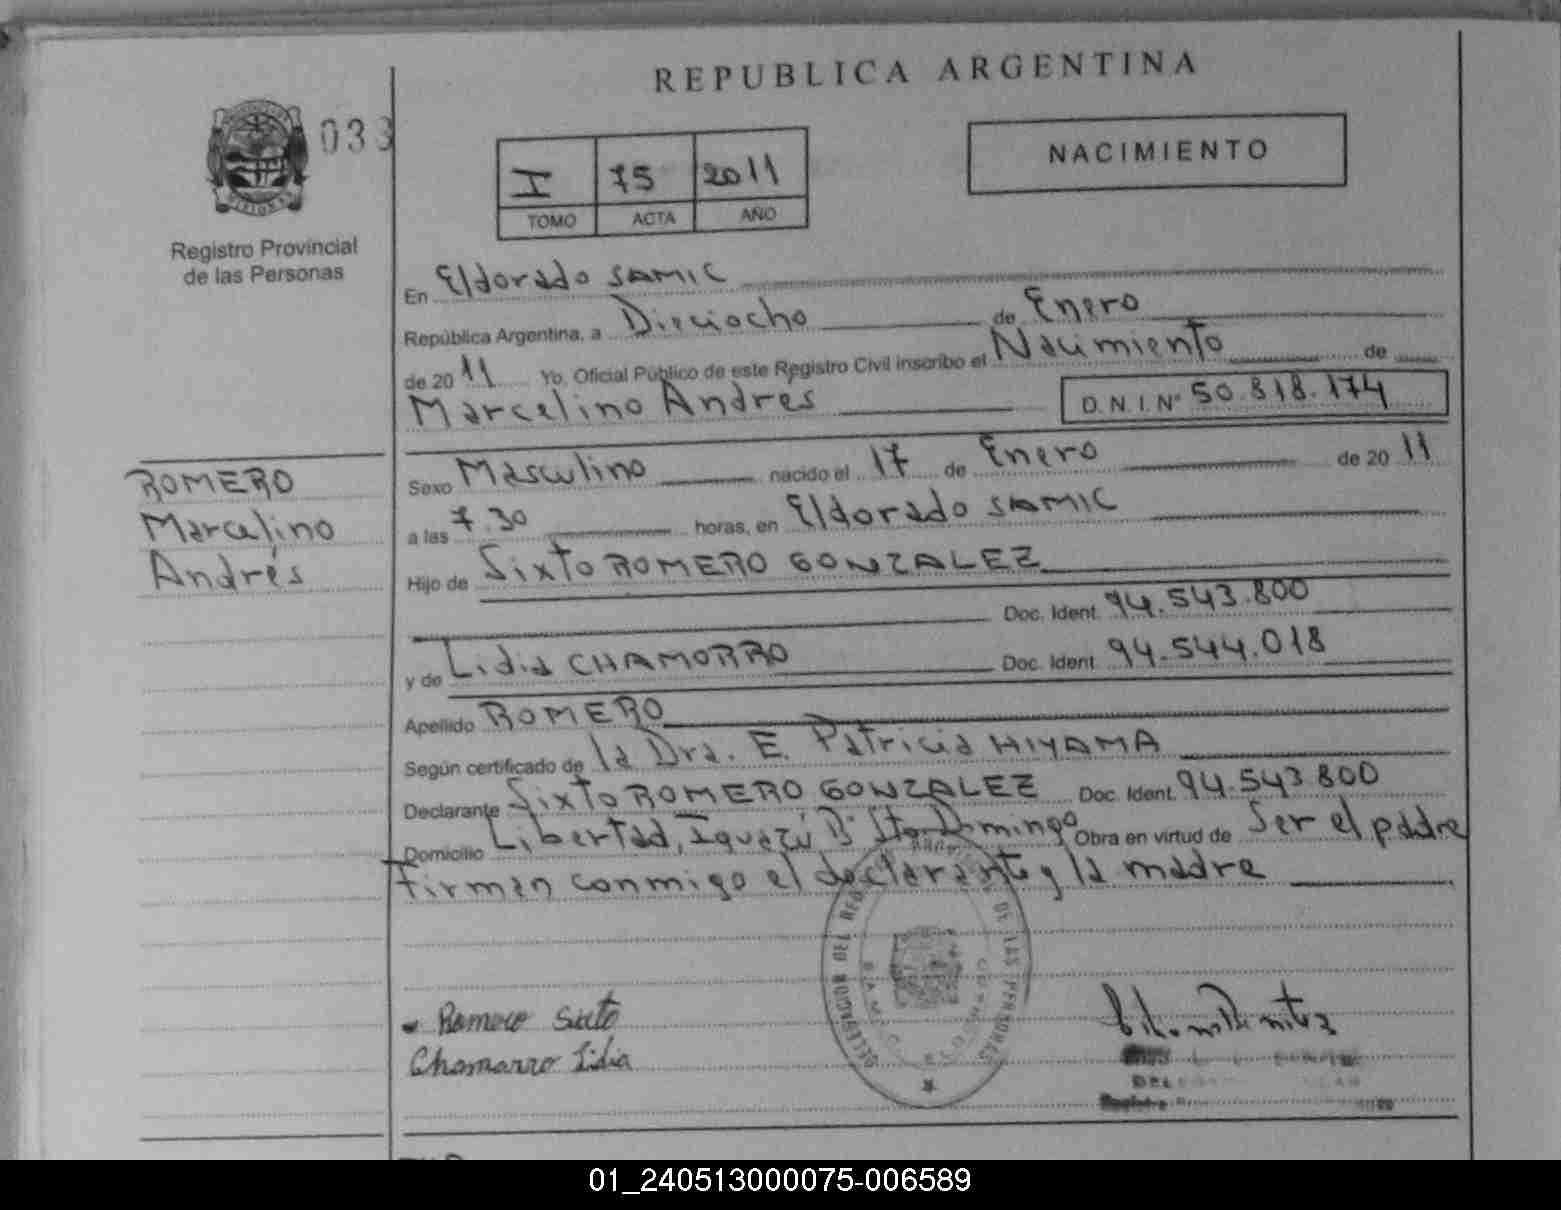 REPUBLICA ARGENTINA
033
I 75 2011
TOMO ACTA AÑO
NACIMIENTO
Registro Provincial
de las Personas
En Eldorado SAMIC
República Argentina, a Dieciocho de Enero
de 2011 Yo, Oficial Público de este Registro Civil inscribo el Nacimiento de
Marcelino Andrés D.N.I.Nº 50.818.174
ROMERO
Marcelino
Andrés
Sexo Masculino nacido el 17 de Enero de 2011
a las 7.30 horas, en Eldorado SAMIC
Hijo de Sixto ROMERO GONZALEZ
Doc. Ident. 94.543.800
y de Lidia CHAMORRO Doc. Ident. 94.544.018
Apellido ROMERO
Según certificado de la Dra. E. Patricia HIYAMA
Declarante Sixto ROMERO GONZALEZ Doc. Ident. 94.543.800
Domicilio Libertad, Iguazú Bº Sto Domingo Obra en virtud de Ser el padre
Firman conmigo el declarante y la madre
DELEGACION DEL REGISTRO DE LAS PERSONAS
Romero Sixto
Chamorro Lidia
01_240513000075-006589